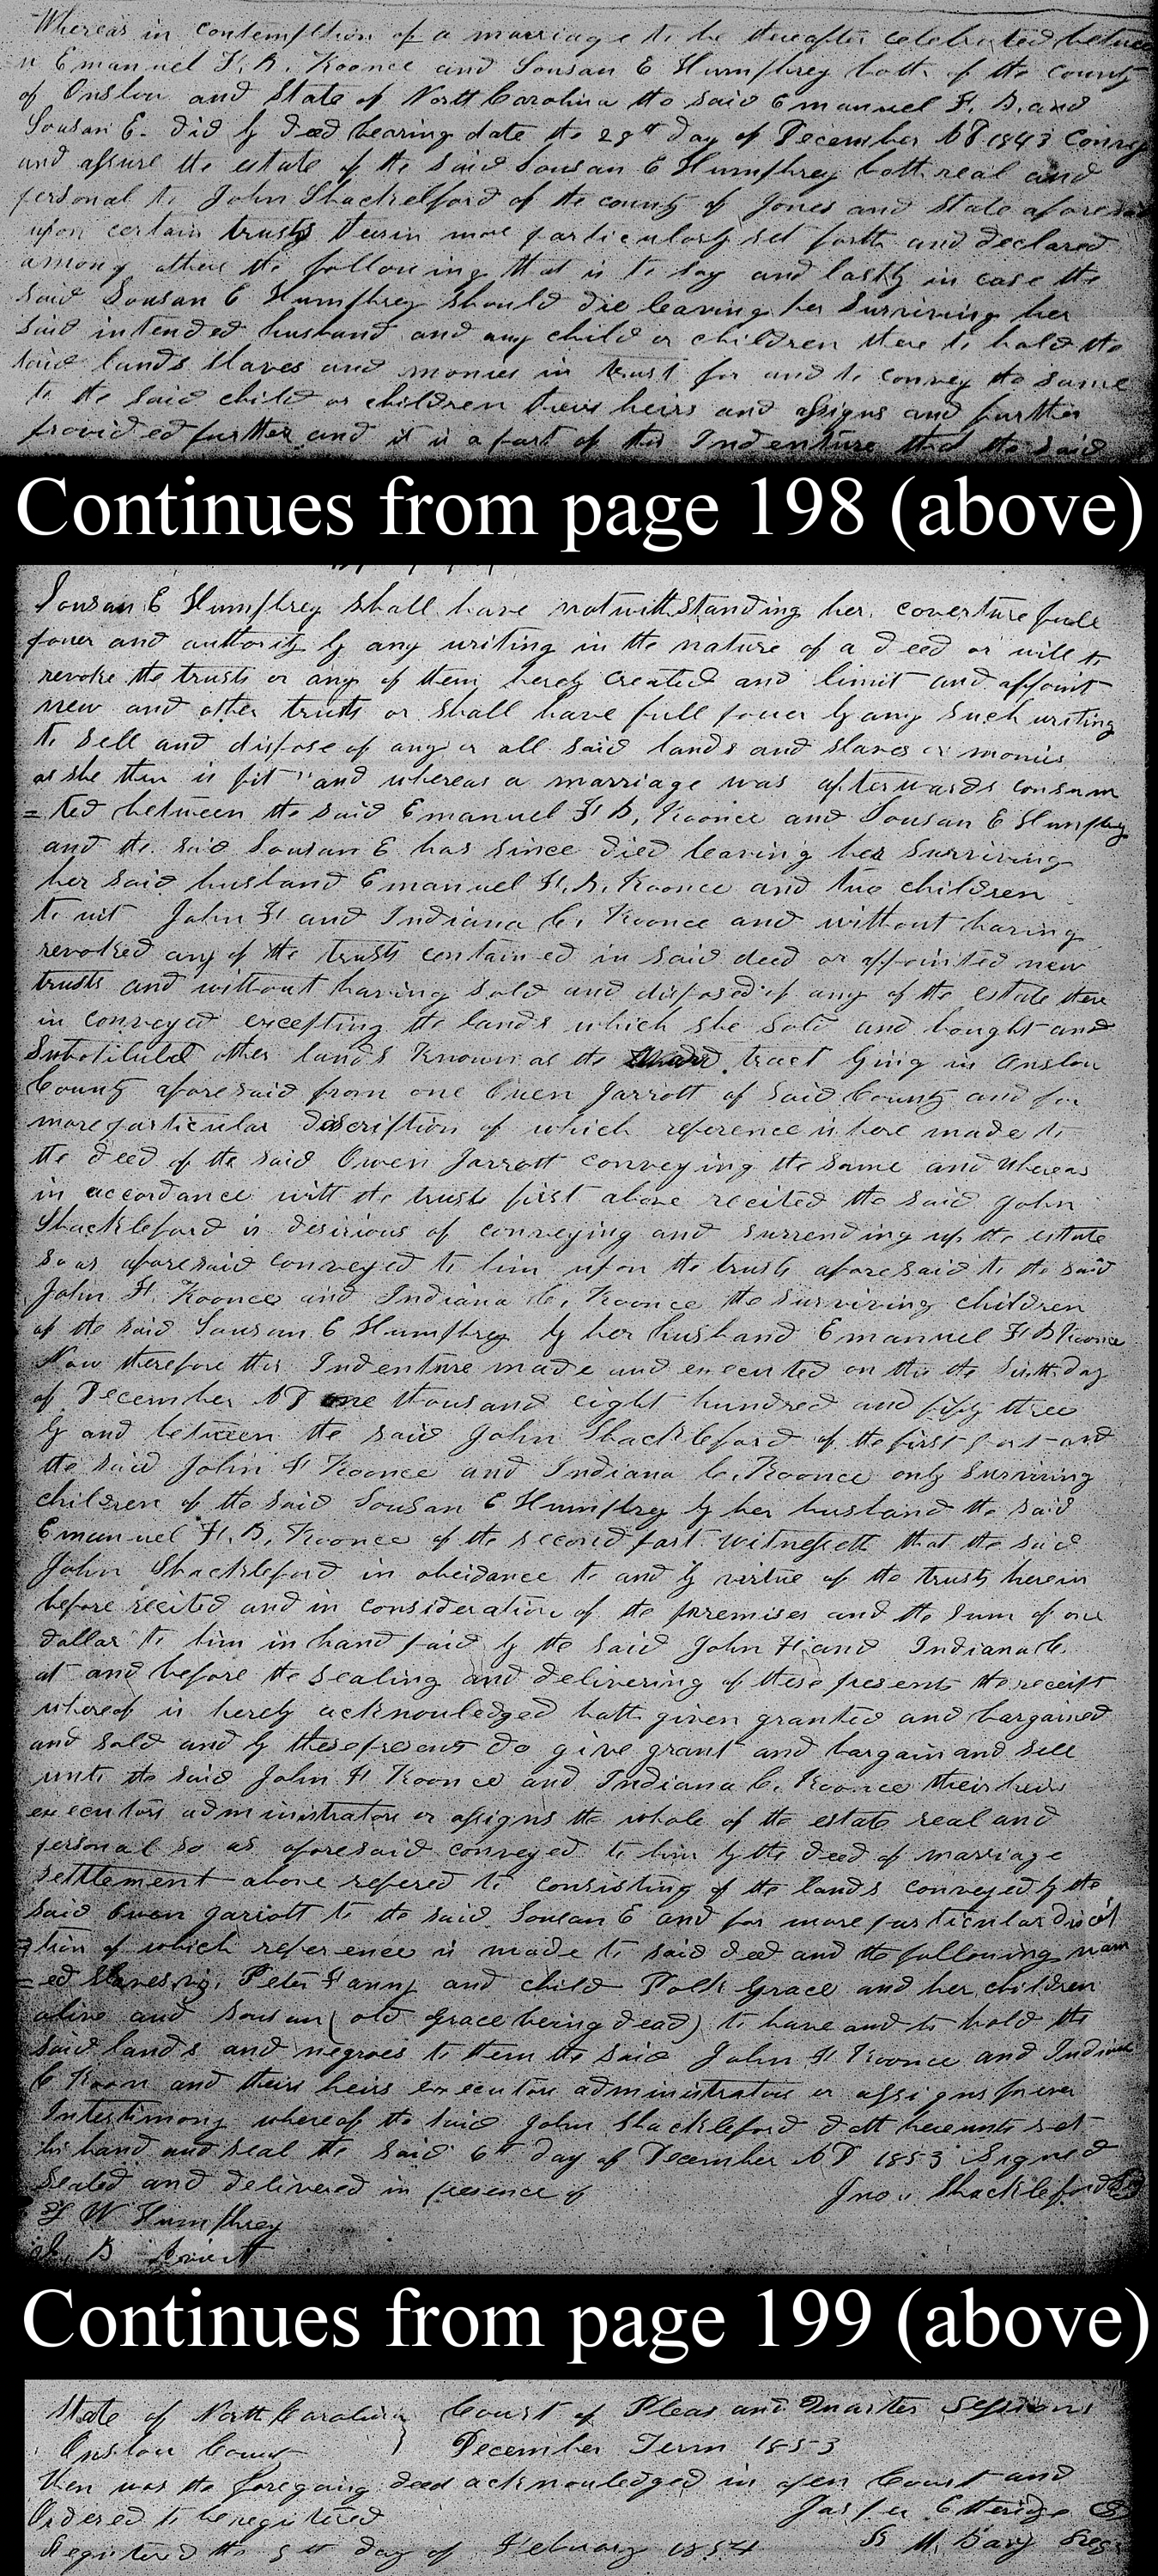 Whereas in contempltion of a marriage to be thereafter celebrated betwee
n Emanuel F. B. Koonce and Sousan E Humphrey both of the County
of Onslow and State of North Carolina the said Emanuel F. B. and
Sousan E. did by deed bearing date the 28th day of December AD 1843 Convey
and assure the estate of the said Sousan E Humphrey both real and
personal to John Shackelford of the county of Jones and State aforesaid
upon certain trusts therin more particularly set forth and declared
among others the following that is to say and lastly in case the
said Sousan E Humphrey should die leaving her surviving her
said intended husband and any child or children there to hold the
said lands slaves and monies in trust for and to convey the same
to the said child or children their heirs and assigns and further
provided further and it is a part of this Indenture that the said
Continues from page 198 (above)
Sousan E Humphrey shall have notwithstanding her coverture full
power and authority by any writing in the nature of a deed or will to
revoke the trusts or any of them hereby created and limit and appoint
new and other trusts or shall have full power by any such writing
to sell and dispose of any or all said lands and slaves or monies
as she then is fit" and whereas a marriage was afterwards consum
=ted between the said Emanuel F B. Koonce and Sousan E Humphrey
and the said Sousan E has since died leaving her surviving
her said husband Emanuel F. B. Koonce and two children
to wit John F and Indiana C. Koonce and without having
revoked any of the trusts contained in said deed or appointed new
trusts and without having sold and disposed of any of the estate there
in conveyed excepting the lands which she sold and bought and
Substituted other lands known as the tract lying in Onslow
County aforesaid from one Owen Jarrott of said County and for
more particular discription of which reference is here made to
the deed of the said Owen Jarrott conveying the same and whereas
in accordance with the trusts first above recited the said John
Shackleford is desirious of conveying and surrending up the estate
so as aforesaid conveyed to him upon the trusts aforesaid to the said
John F. Koonce and Indiana C. Koonce the surviving children
of the said Sousan E Humphrey by her husband Emanuel F B Koonce
Now therefore this Indenture made and executed on this the Sixth day
of December AD one thousand eight hundred and fifty three
by and between the said John Shackleford of the first part and
the said John F Koonce and Indiana C. Koonce only surviving
children of the said Sousan E Humphrey by her husband the said
Emanuel F. B. Koonce of the second part witnesseth that the said
John Shackleford in obeidance to and by virtue of the trusts herein
before recited and in consideration of the premises and the sum of one
dollar to him in hand paid by the said John F and Indiana C.
at and before the sealing and delivering of these presents the receipt
whereof is hereby acknowledged hath given granted and bargained
and sold and by these presents do give grant and bargain and sell
unto the said John F Koonce and Indiana C. Koonce their heirs
executors administrators or assigns the whole of the estate real and
personal so as aforesaid conveyed to him by the deed of marriage
settlement above refered to consisting of the lands conveyed by the
said Owen Jarrott to the said Sousan E and for more particular discrip
=tion of which reference is made to said deed and the following nam
=ed slaves viz. Peter Fanny and child Polk Grace and her children
alive and Sousan (old Grace being dead) to have and to hold the
said lands and negroes to them the said John F Koonce and Indiana
C Koon and theirs heirs executors administrators or assigns forever
Intestimony whereof the said John Shackleford doth hereunto set
his hand and seal the said 6th day of December AD 1853 Signed
Sealed and delivered in presence of Jno. Shackleford
F W Humphrey
B
Continues from page 199 (above)
State of North Carolina } Court of Pleas and Quarter Sessions
Onslow County } December Term 1853
Then was the foregoing deed acknowledged in open Court and
Ordered to be registered Jasper Etheridge
Registered the 5th day of February 1854